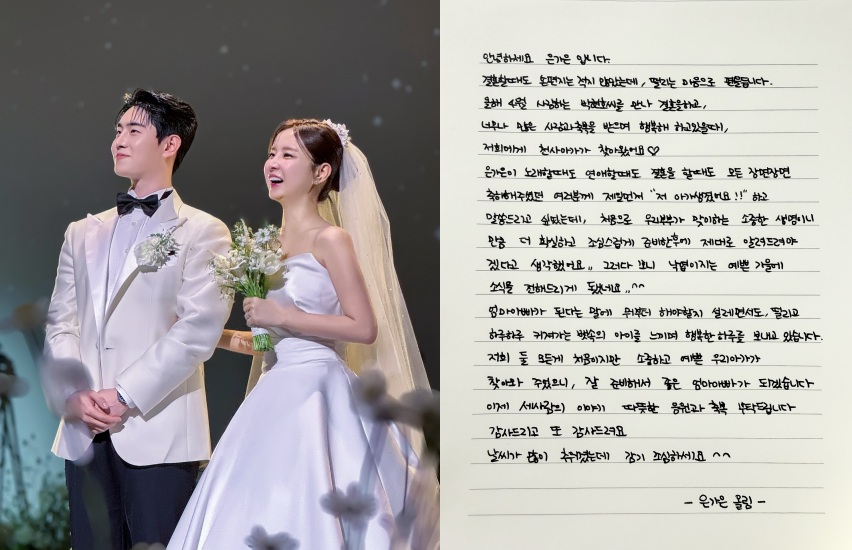 안녕하세요 은가은 입니다.
결혼할때도 손편지는 적지 않았는데, 떨리는 마음으로 펜을듭니다.
올해 4월 사랑하는 박현호씨를 만나 결혼을하고,
너무나 많은 사랑과축복을 받으며 행복해 하고있을때,
저희에게 천사아가가 찾아왔어요♡
은가은이 노래할때도 연애할때도 결혼을 할때도 모든 장면장면
축하해주셨던 여러분께 제일먼저 "저 아가생겼어요!!" 하고
말씀드리고 싶었는데, 처음으로 우리부부가 맞이하는 소중한 생명이니
만큼 더 확실하고 조심스럽게 준비한후에 제대로 알려드려야
겠다고 생각했어요,, 그러다 보니 낙엽이지는 예쁜 가을에
소식을 전해드리게 됐네요..^^
엄마아빠가 된다는 맘에 뭐부터 해야할지 설레면서도, 떨리고
하루하루 커져가는 뱃속의 아이를 느끼며 행복한 하루를 보내고 있습니다.
저희 둘 모든게 처음이지만 소중하고 예쁜 우리아가가
찾아와 주었으니, 잘 준비해서 좋은 엄마아빠가 되겠습니다
이제 세사람의 이야기 따뜻한 응원과 축복 부탁드립니다
감사드리고 또 감사드려요
날씨가 많이 추워졌는데 감기 조심하세요 ^^
- 은가은 올림 -